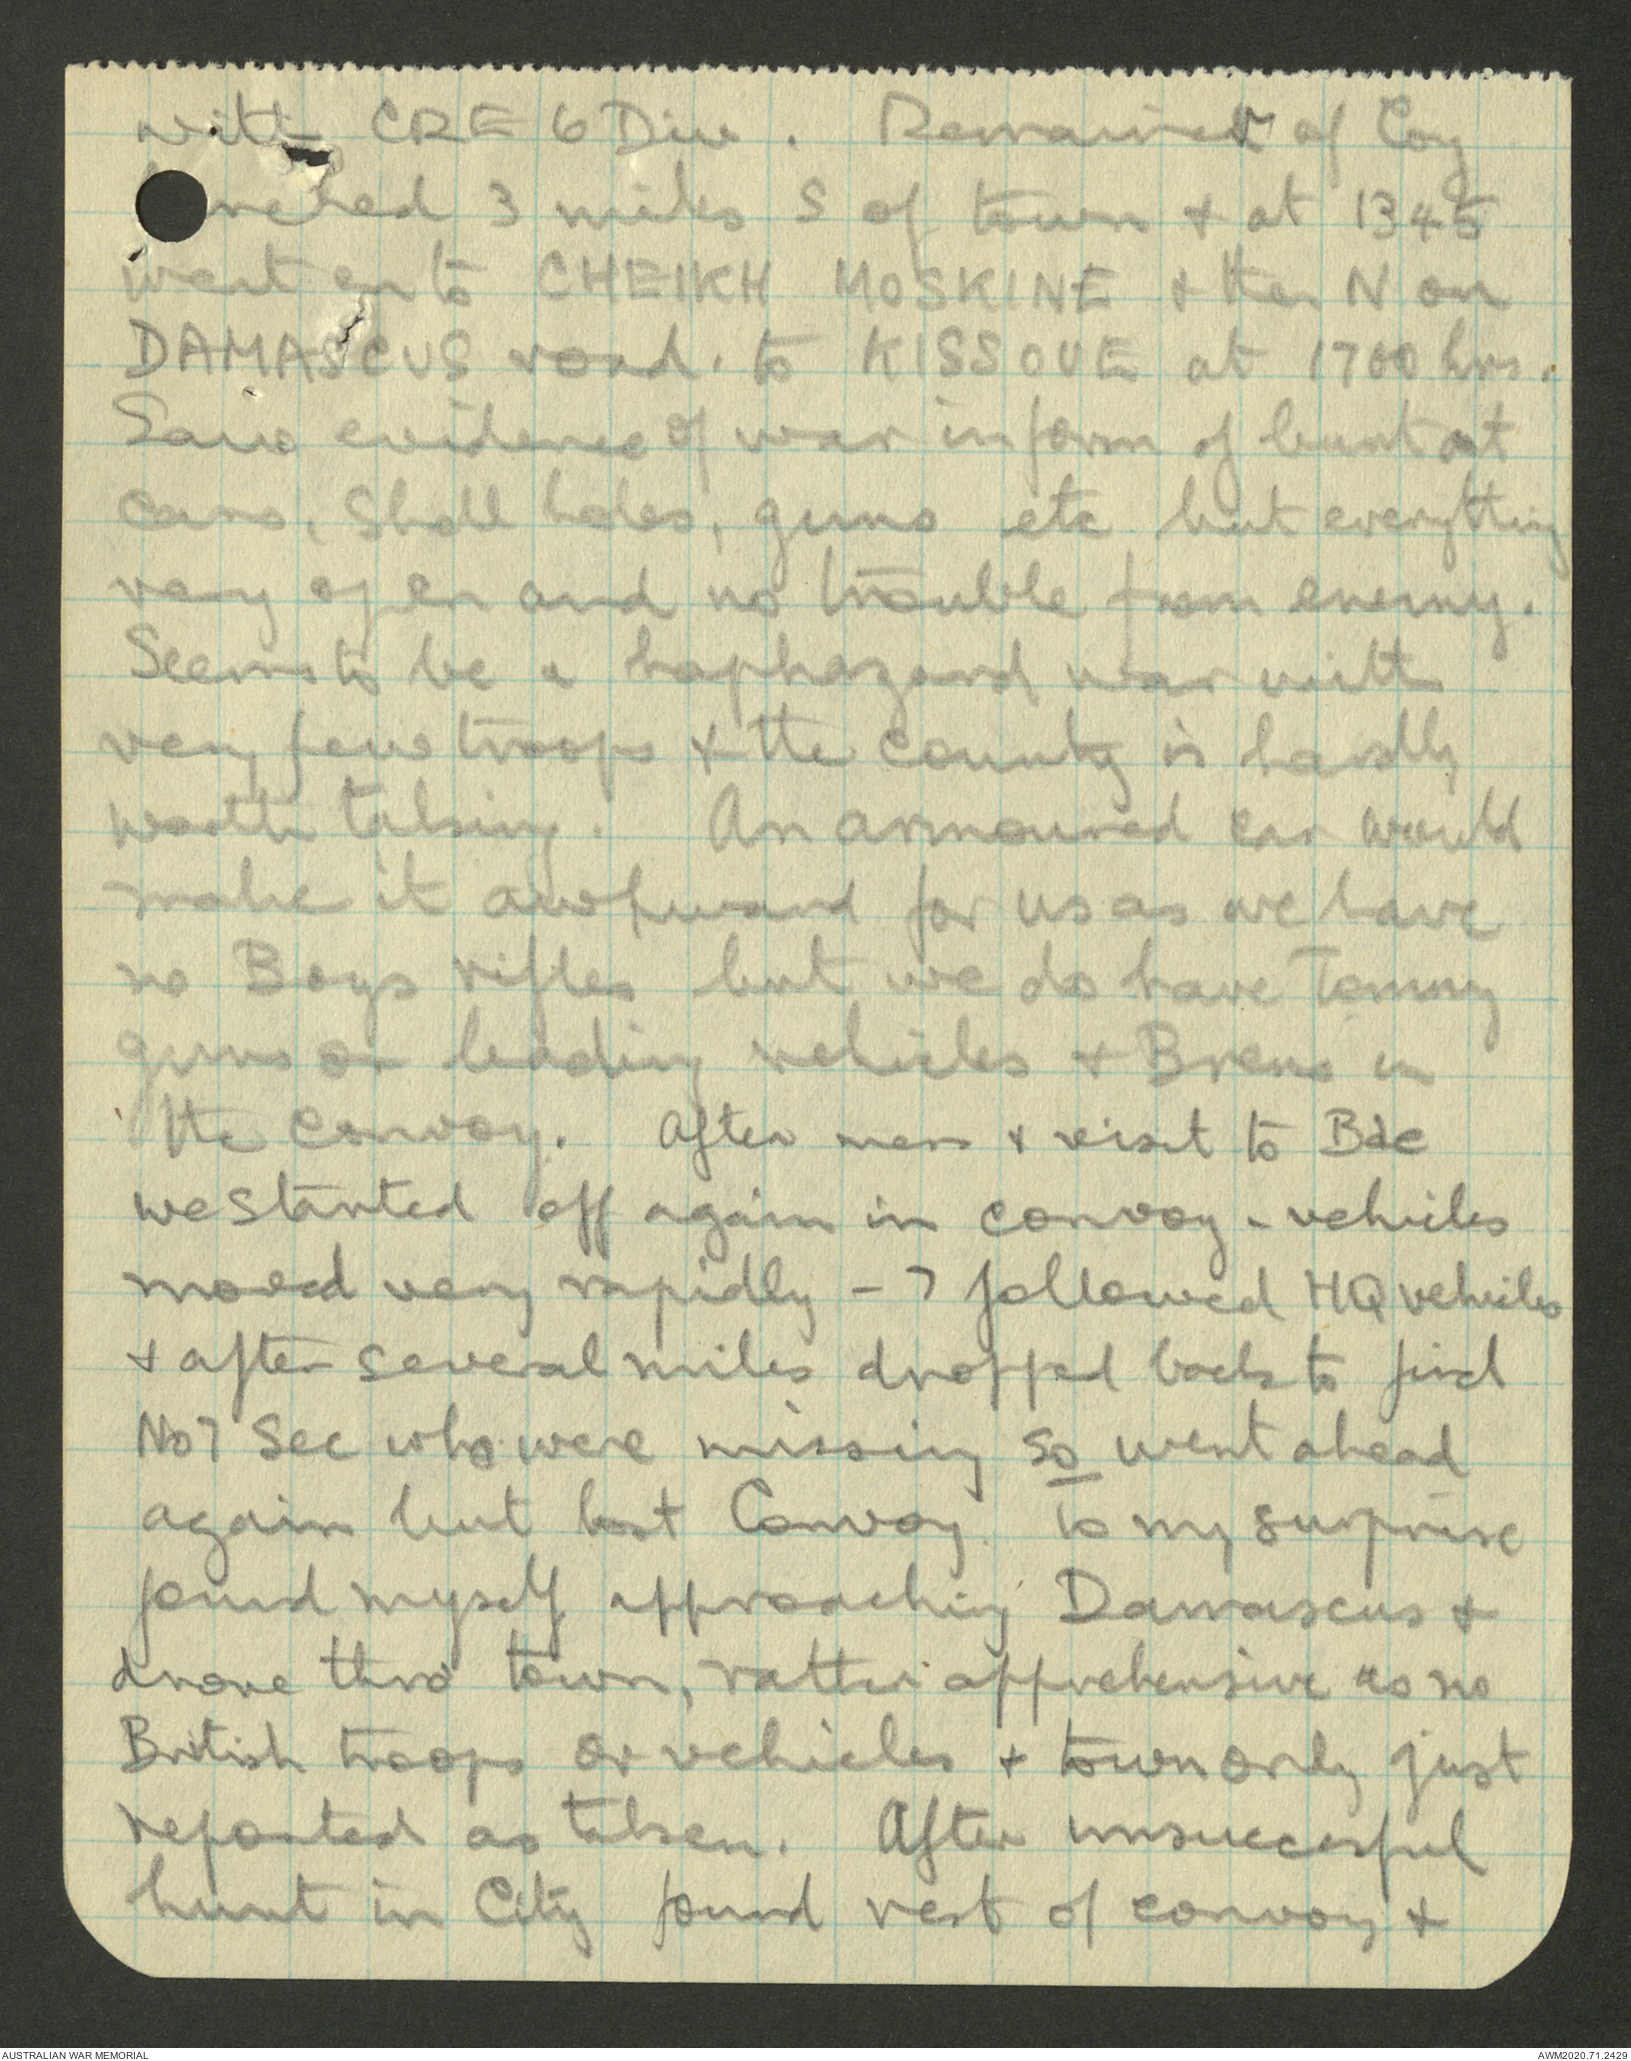 with CRE 6 Div. Remainder of Coy
lunched 3 miles S of town & at 1345
went on to CHEIKH MOSKINE & then N on
DAMASCUS road, to KISSOUE at 1700 hrs.
Saw evidence of war in form of burnt out
cars, shell holes, guns etc but everything
very open and no trouble from enemy.
Seems to be a haphazard war with
very few troops & the country is hardly
worth taking. An armoured car would
make it awkward for us as we have
no Boys rifles but we do have Tommy
guns on leading vehicles & Brens in
the convoy. After mess & visit to Bde
we started off again in convoy - vehicles
moved very rapidly - I followed HQ vehicles
& after several miles dropped back to find
No 7 Sec who were missing so went ahead
again but lost Convoy. To my surprise
found myself approaching Damascus &
drove thro' town, rather apprehensive as no
British troops or vehicles & town only just
reported as taken. After unsuccessful
hunt in City found rest of convoy &
AUSTRALIAN WAR MEMORIAL
AWM2020.71.2429